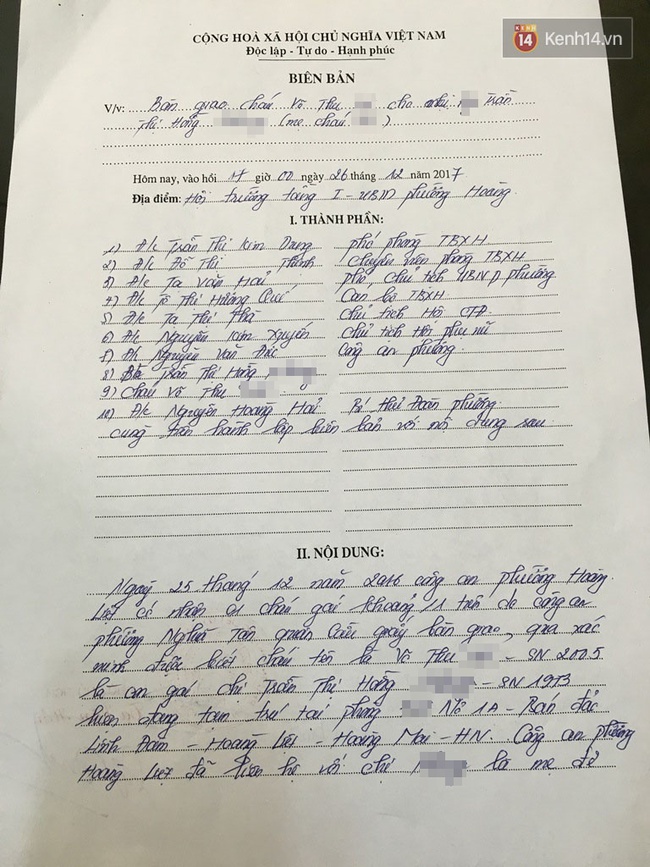 14 Kenh14.vn
CỘNG HOÀ XÃ HỘI CHỦ NGHĨA VIỆT NAM
Độc lập - Tự do - Hạnh phúc
BIÊN BẢN
V/v: Bàn giao cháu Võ Thu cho mẹ Trần
Thị Hồng (mẹ cháu )
Hôm nay, vào hồi 17 giờ 00 ngày 26 tháng 12 năm 2017
Địa điểm: Hội trường tầng I - UBND phường Hoàng
I. THÀNH PHẦN:
1) Đ/c Trần Thị Kim Dung phó phòng TBXH
2) Đ/c Đỗ Thị Thành chuyên viên phòng TBXH
3) Đ/c Tạ Văn Hải phó chủ tịch UBND phường
4) Đ/c Thị Hương Cán bộ TBXH
5) Đ/c Tạ Thị chủ tịch Hội CTĐ
6) Đ/c Nguyễn Kim Xuyến chủ tịch Hội phụ nữ
7) Đ/c Nguyễn Văn Đức Công an phường
8) Trần Thị Hồng
9) Cháu Võ Thu
10) Đ/c Nguyễn Hoàng Hải Bí thư Đoàn phường
cùng tiến hành lập biên bản với nội dung sau
II. NỘI DUNG:
Ngày 25 tháng 12 năm 2016 công an phường Hoàng
Liệt có nhận cháu gái khoảng 11 tuổi do công an
phường Nghĩa Tân quận Cầu giấy bàn giao, qua xác
minh được biết cháu tên là Võ Thu - SN 2005
là con gái chị Trần Thị Hồng - SN 1973
hiện đang tạm trú tại phòng Nơ 1A - Bán đảo
Linh Đàm - Hoàng Liệt - Hoàng Mai - HN. Công an phường
Hoàng Liệt đã liên hệ với chị là mẹ đẻ